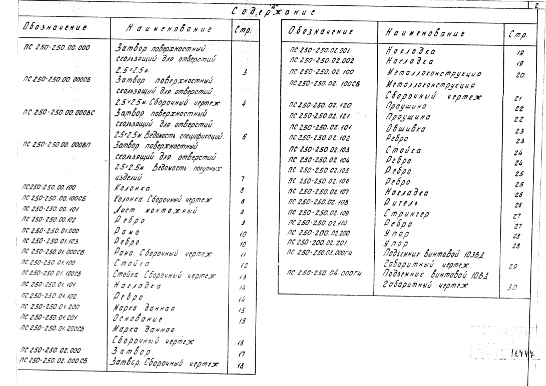 Содержание
2
Обозначение Наименование Стр.
ПС 250-250.00.000 Затвор поверхностный
скользящий для отверстий
2,5×2,5м 3
ПС 250-250.00.000СБ Затвор поверхностный
скользящий для отверстий
2,5×2,5м Сборочный чертеж 4
ПС 250-250.00.000ВС Затвор поверхностный
скользящий для отверстий
2,5×2,5м Ведомость спецификаций 6
ПС 250-250.00.000ВП Затвор поверхностный
скользящий для отверстий
2,5×2,5м Ведомость покупных
изделий 7
ПС 250-250.00.100 Колонка 8
ПС 250-250.00.100СБ Колонка Сборочный чертеж 8
ПС 250-250.00.101 Лист монтажный
ПС 250-250.00.102 Ребро 9
ПС 250-250.01.000 Рама 10
ПС 250-250.01.103 Ребро 10
ПС 250-250.01.000СБ Рама. Сборочный чертеж 11
ПС 250-250.01.100 Стойка 12
ПС 250-250.01.100СБ Стойка. Сборочный чертеж 13
ПС 250-250.01.101 Накладка 14
ПС 250-250.01.102 Ребро 14
ПС 250-250.01.200 Марка данная 15
ПС 250-250.01.201 Основание 15
ПС 250-250.01.200СБ Марка данная
Сборочный чертеж 16
ПС 250-250.02.000 Затвор 17
ПС 250-250.02.000СБ Затвор. Сборочный чертеж 18
Обозначение Наименование Стр.
ПС 250-250.02.001 Накладка 19
ПС 250-250.02.002 Накладка 19
ПС 250-250.02.100 Металлоконструкция 20
ПС 250-250.02.100СБ Металлоконструкция
Сборочный чертеж 21
ПС 250-250.02.120 Проушина 22
ПС 250-250.02.121 Проушина 22
ПС 250-250.02.101 Обшивка 23
ПС 250-250.02.102 Ребро 23
ПС 250-250.02.103 Стойка 24
ПС 250-250.02.104 Ребро 24
ПС 250-250.02.105 Ребро 25
ПС 250-250.02.106 Ребро 25
ПС 250-250.02.107 Накладка 26
ПС 250-250.02.108 Ригель 26
ПС 250-250.02.109 Стрингер 27
ПС 250-250.02.110 Ребро 27
ПС 250-200.02.200 Упор 28
ПС 250-200.02.201 Упор 28
ПС 250-250.03.000ГЧ Подъемник винтовой 10ВД
Габаритный чертеж 29
ПС 250-250.04.000ГЧ Подъемник винтовой
Габаритный чертеж 30